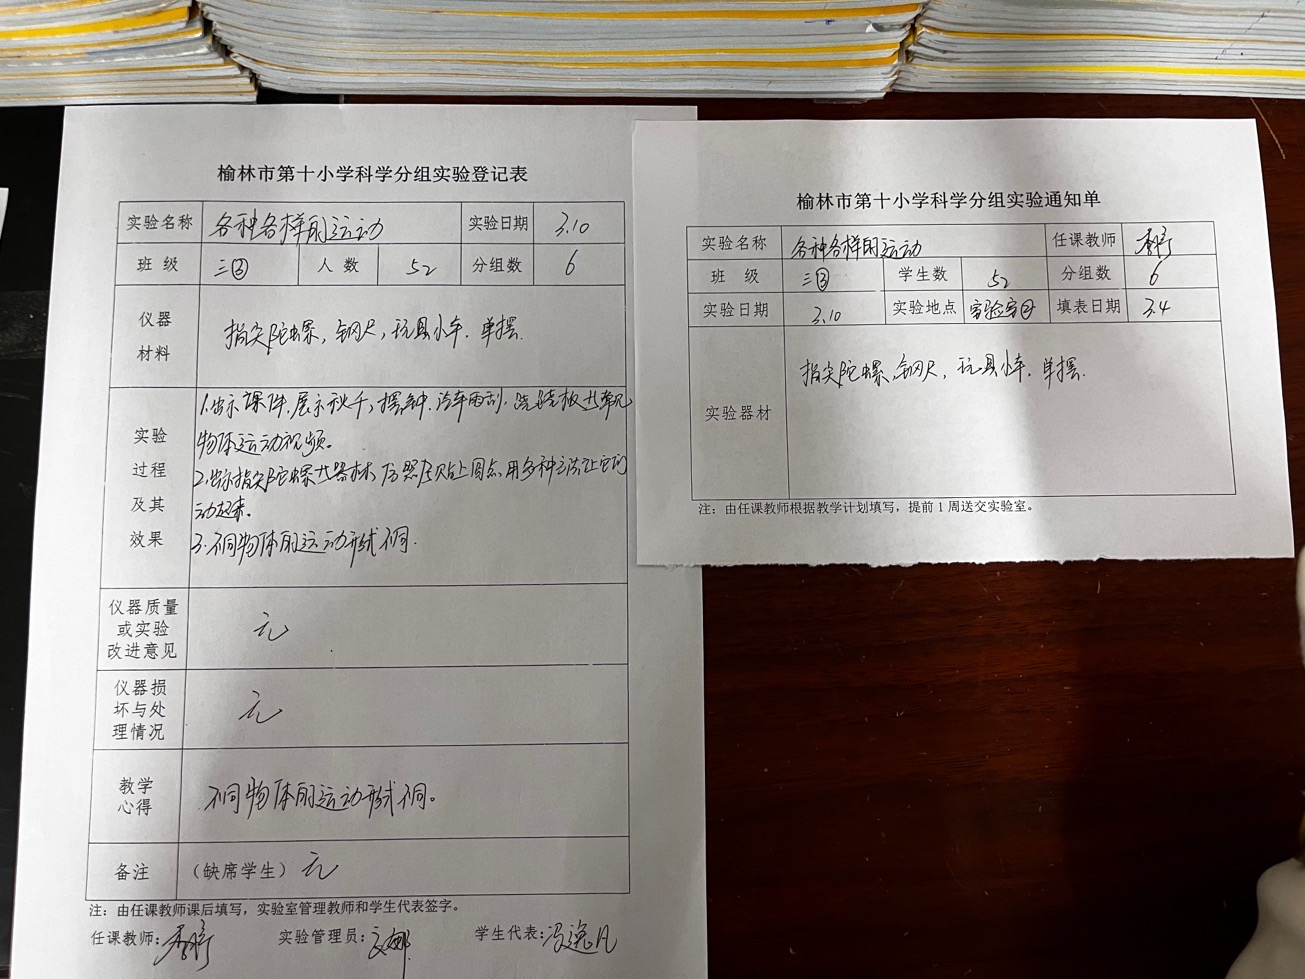 榆林市第十小学科学分组实验登记表
实验名称 各种各样的运动 实验日期 3.10
班 级 三③ 人 数 52 分组数 6
仪器
材料
指尖陀螺,钢尺,玩具小车.单摆.
实验
过程
及其
效果
1.出示课件,展示秋千,摆钟.汽车雨刮,跷跷板等常见
物体运动视频。
2.出示指尖陀螺等器材,
用多种方法让它们
动起来。
3.不同物体的运动形式不同.
仪器质量
或实验
改进意见
无
仪器损
坏与处
理情况
无
教学
心得
不同物体的运动形式不同。
备注 (缺席学生) 无
注:由任课教师课后填写,实验室管理教师和学生代表签字。
任课教师: 实验管理员: 学生代表:冯逸凡
榆林市第十小学科学分组实验通知单
实验名称 各种各样的运动 任课教师
班 级 三③ 学生数 52 分组数 6
实验日期 3.10 实验地点 实验室 填表日期 3.4
实验器材
指尖陀螺,钢尺,玩具小车.单摆.
注:由任课教师根据教学计划填写,提前1周送交实验室。